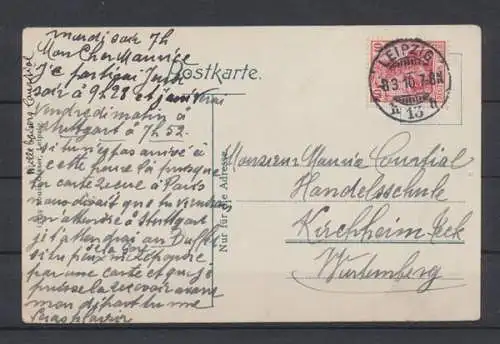 mardi soir 7h
Mon Cher Maurice
Je partirai Jeudi
soir à 9h28 et j'arriverai
Vendredi matin à
Stuttgart à 7h52.
si tu n'es pas arrivé à
cette heure là puisque
carte reçue à Paris
que tu viendrais
à Stuttgart
je t'attendrai au Buffet
de la Gare
si tu peux répondre
par une carte et que je
puisse la recevoir avant
mon départ tu me
feras plaisir
Mille baisers Courtial
Postkarte.
Nur für die Adresse
LEIPZIG
8.3.10.7-8N
13
10
Monsieur Maurice Courtial
Handelsschule
Kirchheim Teck
Wurtemberg